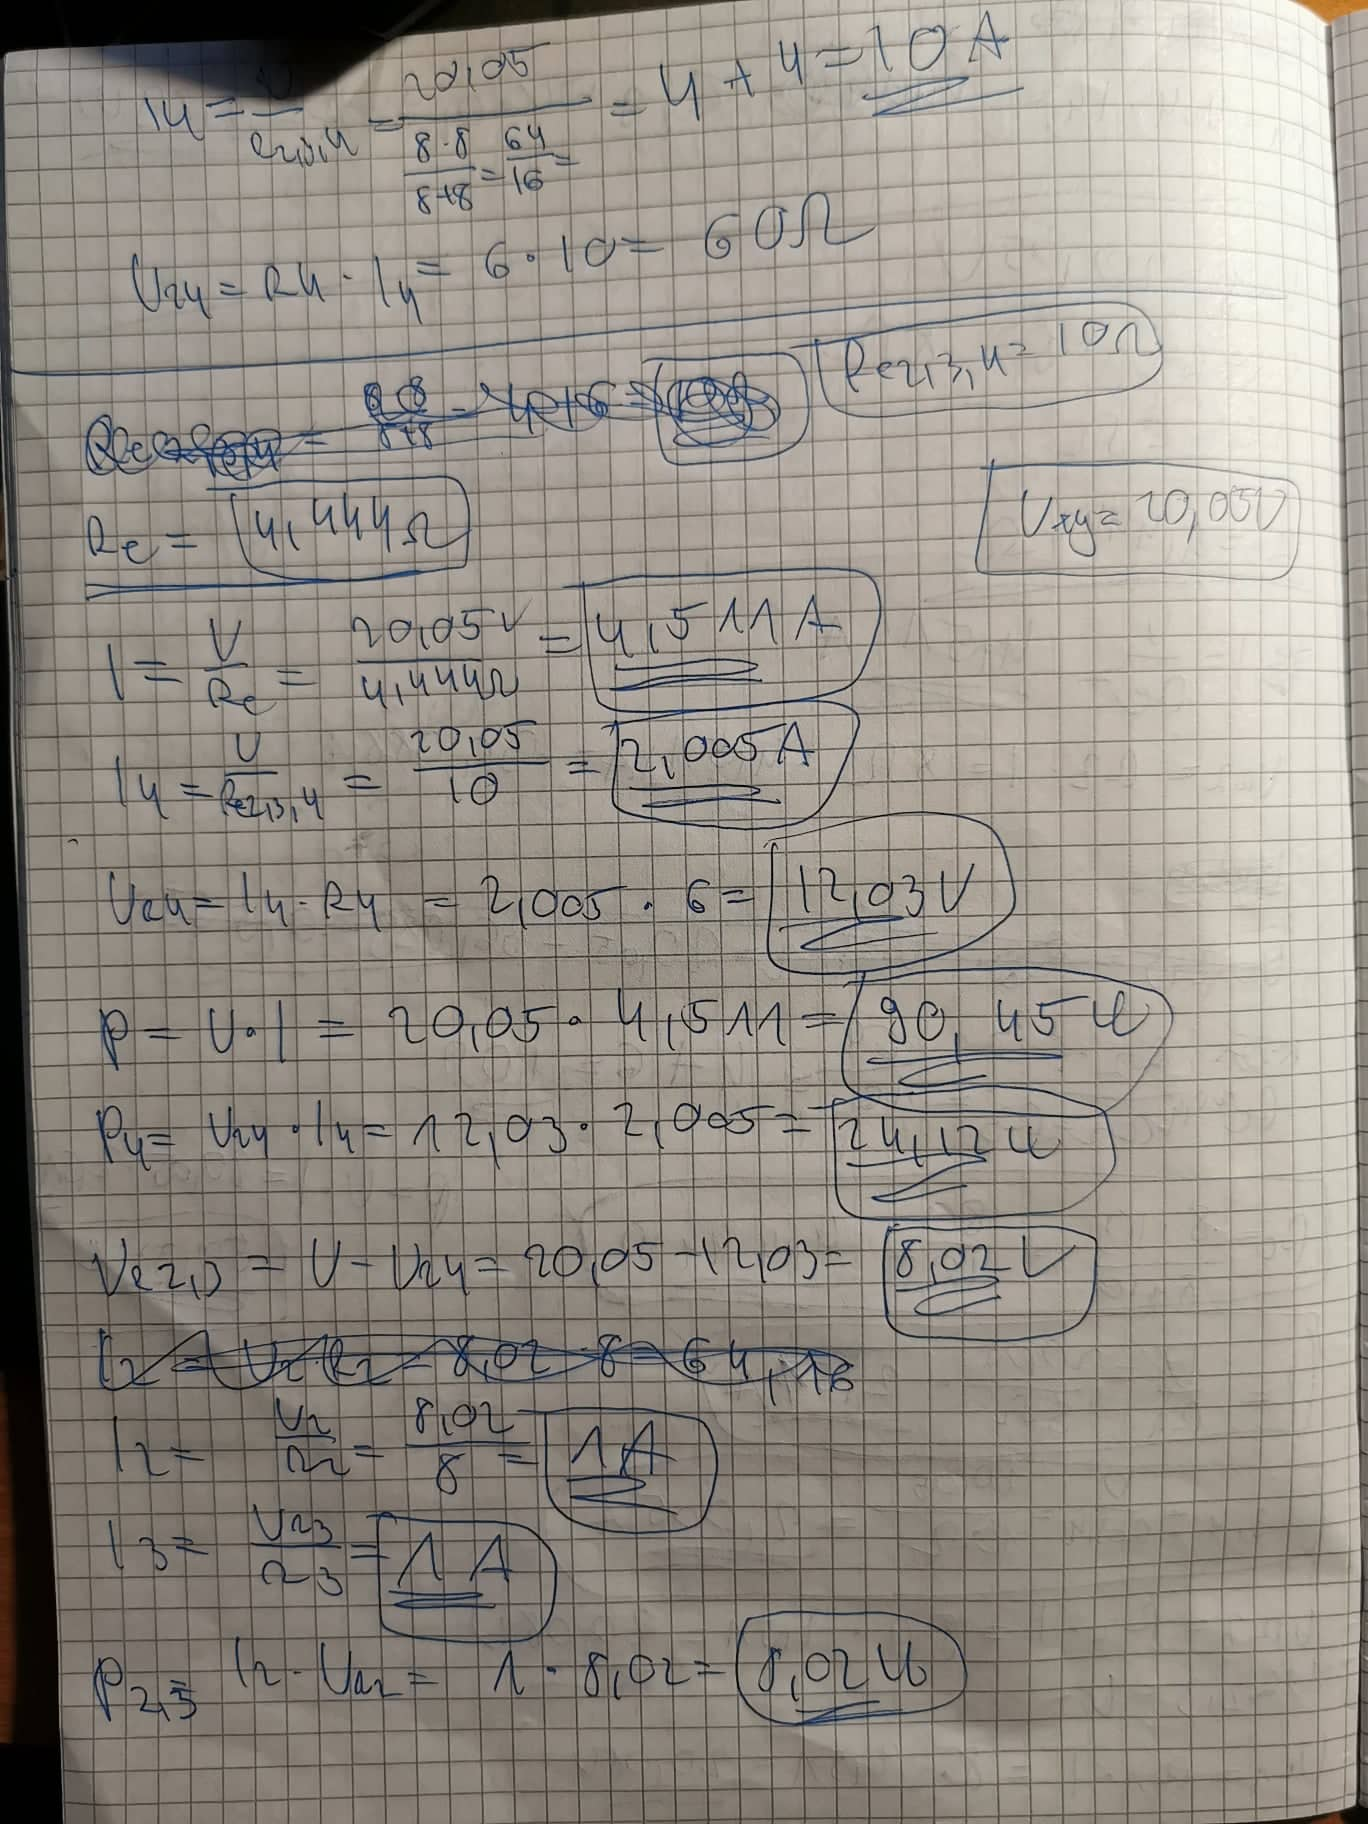 I4 = U / Re2,3,4 = 20,05 / (8·8 / 8+8 = 64 / 16 =) = 4 + 4 = 10 A
UR4 = R4 · I4 = 6 · 10 = 60Ω
Re2,3,4 = 10Ω
Re = 4,444Ω
Uxy = 20,05V
I = U / Re = 20,05V / 4,444Ω = 4,511 A
I4 = U / Re2,3,4 = 20,05 / 10 = 2,005A
UR4 = I4 · R4 = 2,005 · 6 = 12,03 V
P = U · I = 20,05 · 4,511 = 90,45 W
P4 = UR4 · I4 = 12,03 · 2,005 = 24,12 W
UR2,3 = U - UR4 = 20,05 - 12,03 = 8,02 V
I2 = U2·R2 = 8,02 · 8 = 64,16
I2 = U2 / R2 = 8,02 / 8 = 1A
I3 = UR3 / R3 = 1 A
P2,3 = I2 · UR2 = 1 · 8,02 = 8,02 W